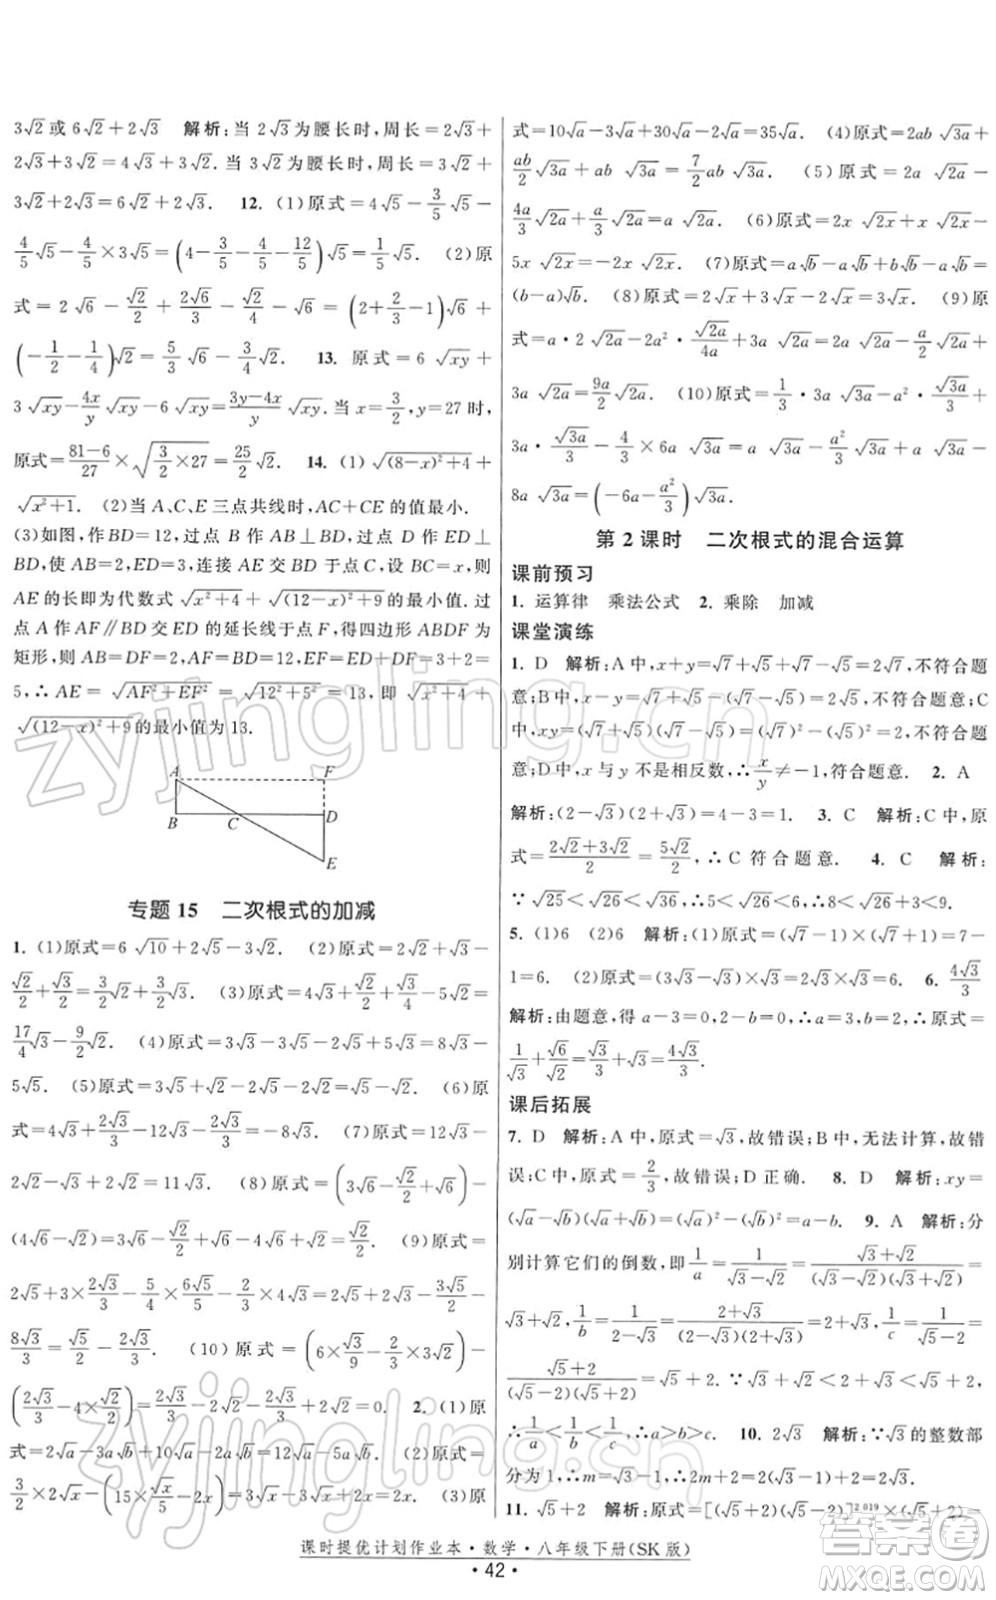 3√2或6√2+2√3 解析:当2√3为腰长时,周长=2√3+
2√3+3√2=4√3+3√2.当3√2为腰长时,周长=3√2+
3√2+2√3=6√2+2√3. 12. (1)原式=4√5-3/5√5-
4/5√5-4/5×3√5=(4-3/5-4/5-12/5)√5=1/5√5. (2)原
式=2√3-√2/2+2√6/3-√3-√2/4=(2+2/3-1)√3+
(-1/2-1/4)√2=5/3√3-3/4√2. 13. 原式=6√xy+
3√xy-4x/y√xy-6√xy=(3y-4x)/y√xy.当x=3/2,y=27时,
原式=(81-6)/27×√(3/2×27)=25/2√2. 14. (1)√((8-x)²+4)+
√(x²+1). (2)当A、C、E三点共线时,AC+CE的值最小.
(3)如图,作BD=12,过点B作AB⊥BD,过点D作ED⊥
BD,使AB=2,ED=3,连接AE交BD于点C,设BC=x,则
AE的长即为代数式√(x²+4)+√((12-x)²+9)的最小值.过
点A作AF∥BD交ED的延长线于点F,得四边形ABDF为
矩形,则AB=DF=2,AF=BD=12,EF=ED+DF=3+2=
5,∴AE=√(AF²+EF²)=√(12²+5²)=13,即√(x²+4)+
√((12-x)²+9)的最小值为13.
A F
B C D
E
专题15 二次根式的加减
1. (1)原式=6√10+2√3-3√2. (2)原式=2√2+√3-
√2/2+√3/2=3/2√2+3/2√3. (3)原式=4√3+√2/2+√3/4-5√2=
17/4√3-9/2√2. (4)原式=3√3-3√5-2√5+5√3=8√3-
5√5. (5)原式=3√5+√2-2√5-2√2=√5-√2. (6)原
式=4√3+2√3/3-12√3-2√3/3=-8√3. (7)原式=12√3-
2√2-√3+2√2=11√3. (8)原式=(3√6-√2/2+√6)-
(4√6-√2)=√2/2. (9)原式=
2√5+3/2×2√3/3-5/4×4√5/5-3/2×4√3/3=2√5+√3-√5-2√3=
(10)原式=(6×√3/9-2/3×3√2)-
(2√3/3-4×√2/2)=2√3/3-2√2-2√3/3+2√2=0. 2. (1)原
式=2√a-3a√b+10√a-2a√b=12√a-5a√b. (2)原式=
3/2×2√x-(15×√x/5-2√x)=3√x-3√x+2√x=2√x. (3)原
式=10√a-3√a+30√a-2√a=35√a. (4)原式=2ab√3a+
ab/2√3a+ab√3a=7/2ab√3a. (5)原式=2a√2a-
4a/3√2a+a/3√2a=a√2a. (6)原式=2x√2x+2x√2x-
5x√2x=-x√2x. (7)原式=a√b-a√b-a√b+b√b=
(b-a)√b. (8)原式=2√x+3√x-2√x=3√x. (9)原
式=a·2√2a-4a²·√2a/4a+3a√2a=2a√2a-a√2a/2+
3a√2a=9a/2√2a. (10)原式=1/3·3a√3a-a²·√3a/3+
3a·√3a/3-4/3×6a√3a=a√3a-a²/3√3a+a√3a-
8a√3a=(-6a-a²/3)√3a.
第2课时 二次根式的混合运算
课前预习
1. 运算律 乘法公式 2. 乘除 加减
课堂演练
1. D 解析:A中,x+y=√7+√5+√7-√5=2√7,不符合题
意;B中,x-y=√7+√5-√7+√5=2√5,不符合题意;C
中,xy=(√7+√5)(√7-√5)=7-5=2,不符合
题意;D中,x与y不是相反数,∴x/y≠-1,符合题意. 2. A
解析:(2-√3)(2+√3)=4-3=1. 3. C 解析:C中,原
式=(2√2+3√2)/2=5√2/2,∴C符合题意. 4. C 解析:
∵√25<√26<√36,∴5<√26<6,∴8<√26+3<9.
5. (1)6 (2)6 解析:(1)原式=(√7-1)×(√7+1)=7-
1=6. (2)原式=(3√3-√3)×√3=2√3×√3=6. 6. 4√3/3
解析:由题意,得a-3=0,2-b=0,∴a=3,b=2,∴原式=
1/√3+√6/√2=√3/3+√3=4√3/3.
课后拓展
7. D 解析:A中,原式=√3,故错误;B中,无法计算,故错
误;C中,原式=√(2/3),故错误;D正确. 8. D 解析:xy=
(√a-√b)(√a+√b)=(√a)²-(√b)²=a-b. 9. A 解析:分
别计算它们的倒数,即1/a=1/(√3-√2)=(√3+√2)/((√3-√2)(√3+√2))=
√3+√2,1/b=1/(2-√3)=(2+√3)/((2-√3)(2+√3))=2+√3,1/c=1/(√5-2)=
(√5+2)/((√5-2)(√5+2))=√5+2.∵√3+√2<2+√3<2+√5,
∴1/a<1/b<1/c,∴a>b>c. 10. 2√3 解析:∵√3的整数部
分为1,∴m=√3-1,∴2m+2=2√3-2+2=2√3.
11. √5+2 解析:原式=[(√5+2)(√5-2)]²⁰¹⁹×(√5+2)
课时提优计划作业本·数学·八年级下册(SK版)
·42·
zyjingling.cn
zyjingling.cn
答案圈
MXQE.COM